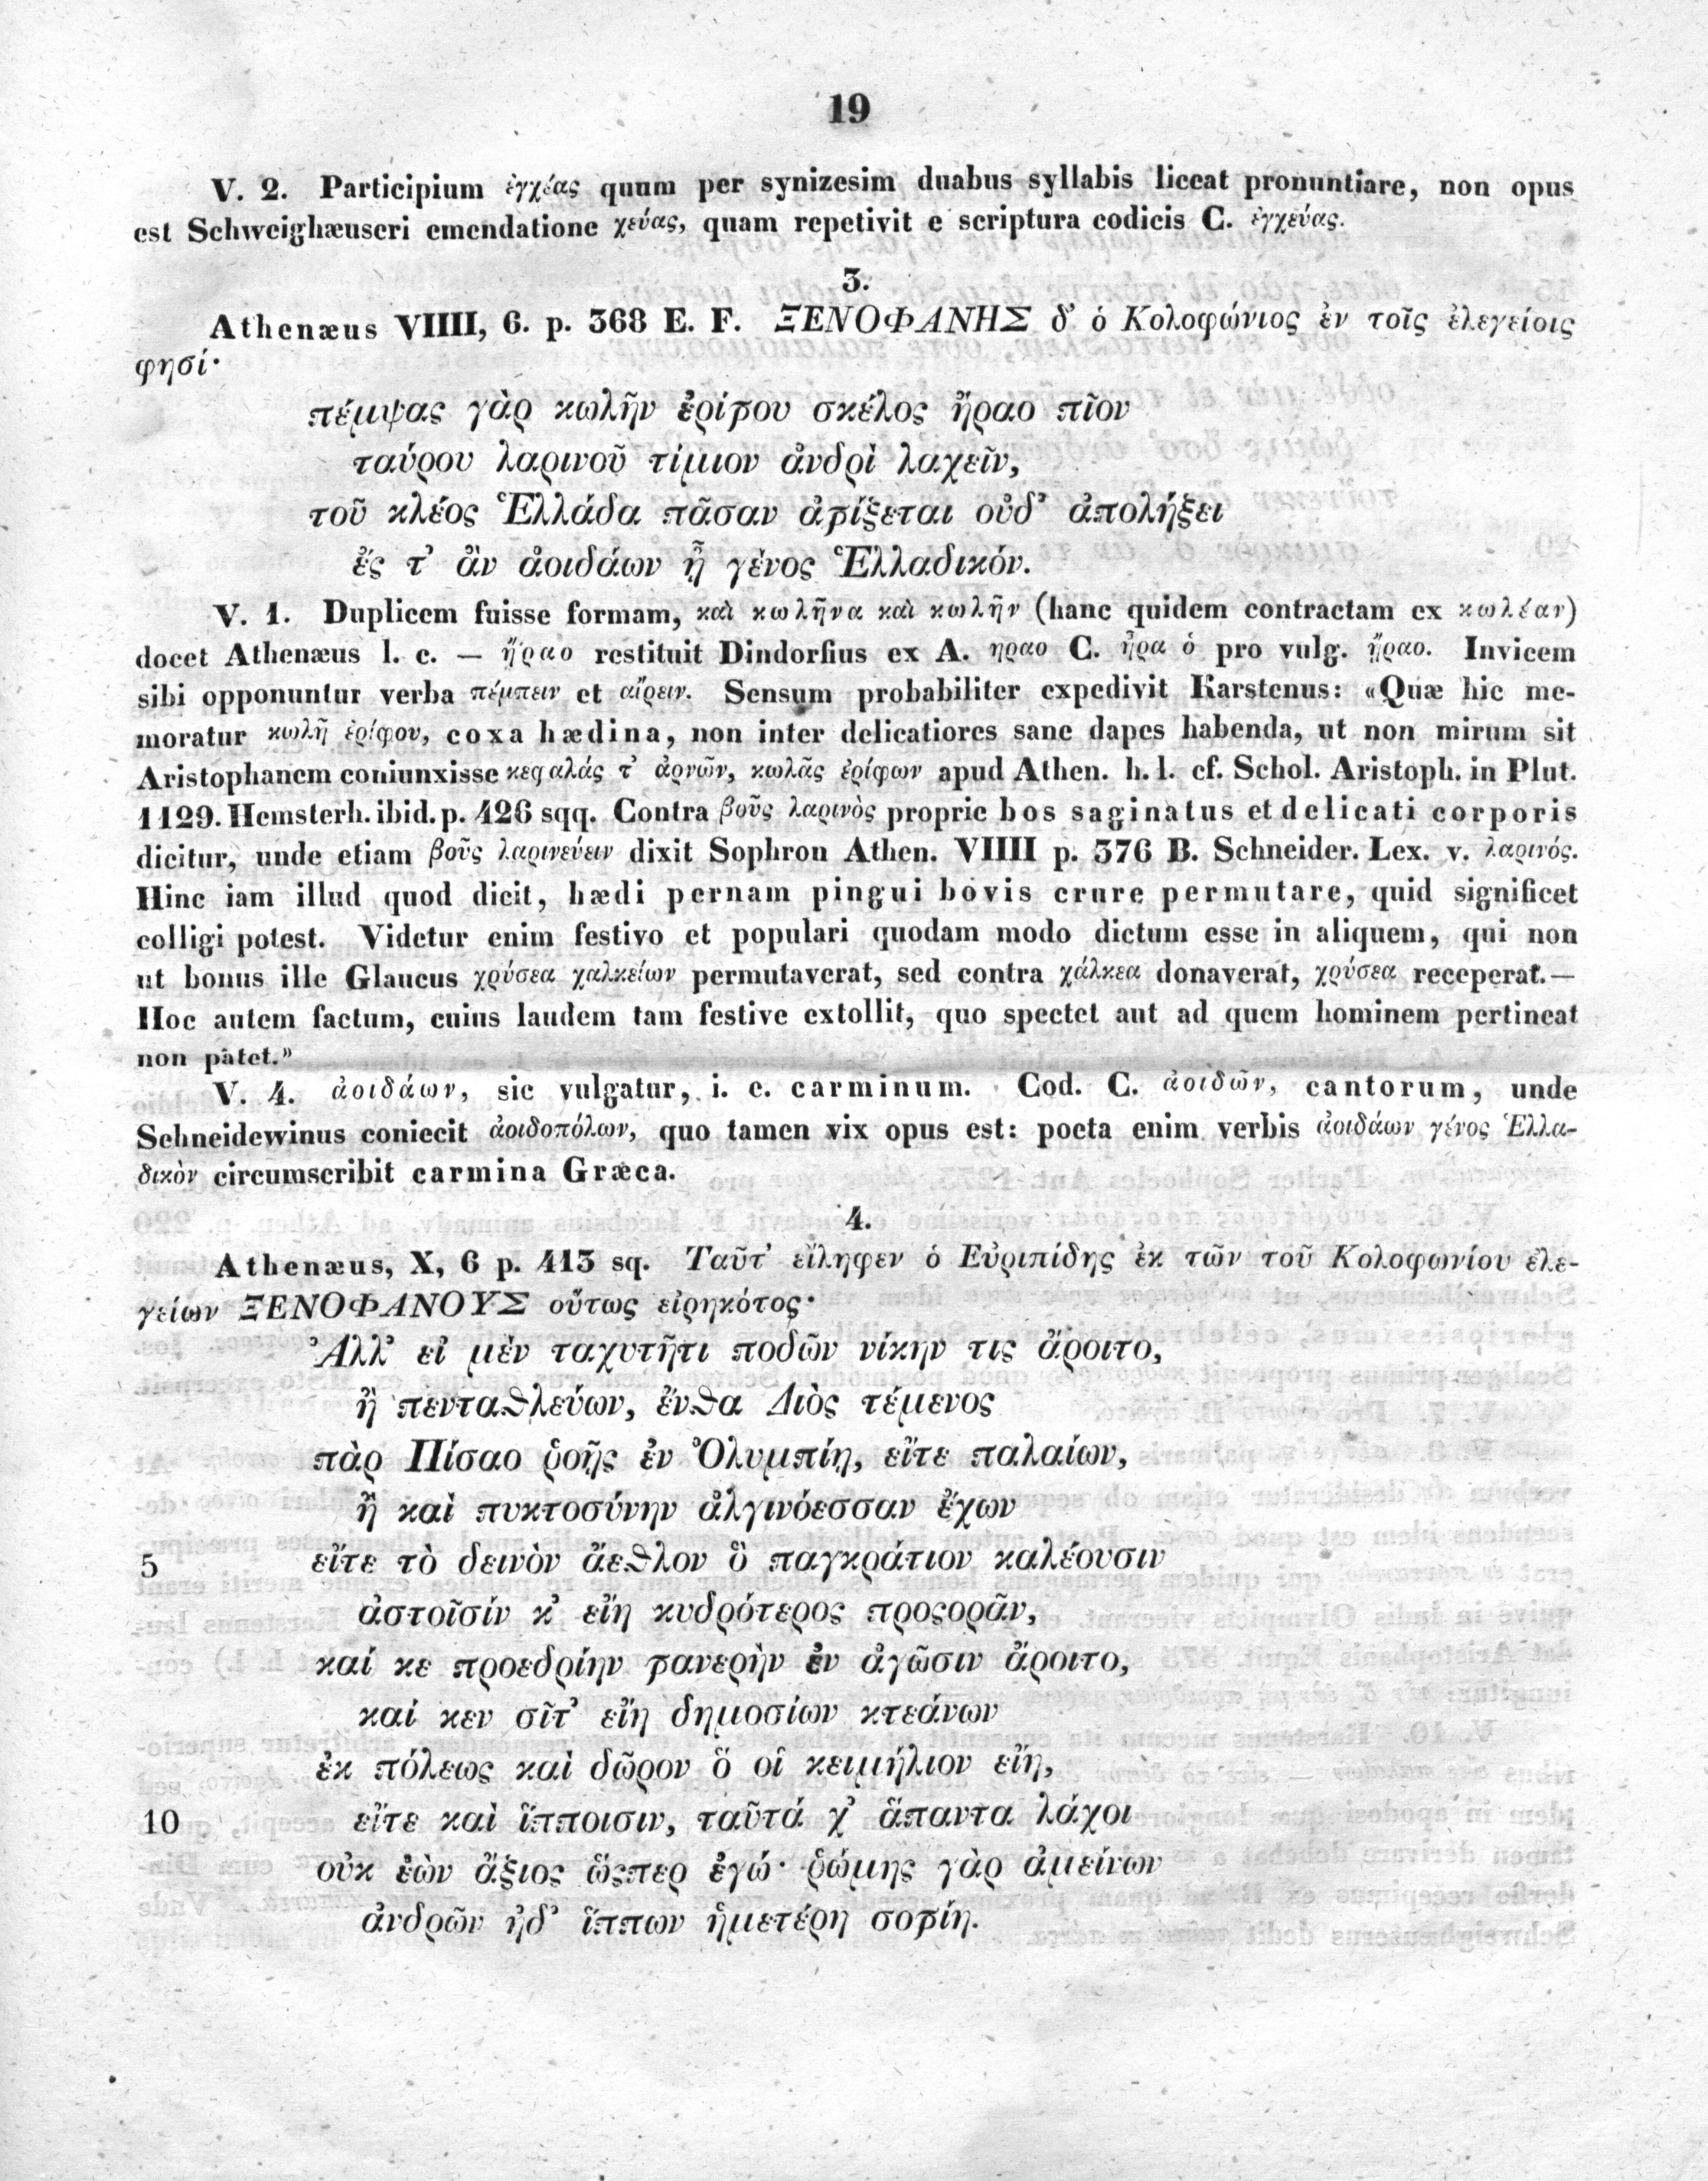 19
V. 2. Participium ἐγχέας quum per synizesim duabus syllabis liceat pronuntiare, non opus
est Schweighæuseri emendatione χεύας, quam repetivit e scriptura codicis C. ἐγχεύας.
3.
Athenæus VIIII, 6. p. 368 E. F. ΞΕΝΟΦΑΝΗΣ δ᾽ ὁ Κολοφώνιος ἐν τοῖς ἐλεγείοις
φησί·
πέμψας γὰρ κωλῆν ἐρίφου σκέλος ἤραο πῖον
ταύρου λαρινοῦ τίμιον ἀνδρὶ λαχεῖν,
τοῦ κλέος Ἑλλάδα πᾶσαν ἀφίξεται οὐδ᾽ ἀπολήξει
ἔς τ᾽ ἂν ἀοιδάων ᾖ γένος Ἑλλαδικόν.
V. 1. Duplicem fuisse formam, καὶ κωλῆνα καὶ κωλῆν (hanc quidem contractam ex κωλέαν)
docet Athenæus l. c. — ἤραο restituit Dindorfius ex A. ηραο C. ἦρα ὁ pro vulg. ᾔραο. Invicem
sibi opponuntur verba πέμπειν et αἴρειν. Sensum probabiliter expedivit Karstenus: «Quæ hic me-
moratur κωλῆ ἐρίφου, coxa hædina, non inter delicatiores sane dapes habenda, ut non mirum sit
Aristophanem coniunxisse κεφαλάς τ᾽ ἀρνῶν, κωλᾶς ἐρίφων apud Athen. h. l. cf. Schol. Aristoph. in Plut.
1129. Hemsterh. ibid. p. 426 sqq. Contra βοῦς λαρινὸς proprie bos saginatus et delicati corporis
dicitur, unde etiam βοῦς λαρινεύειν dixit Sophron Athen. VIIII p. 376 B. Schneider. Lex. v. λαρινός.
Hinc iam illud quod dicit, hædi pernam pingui bovis crure permutare, quid significet
colligi potest. Videtur enim festivo et populari quodam modo dictum esse in aliquem, qui non
ut bonus ille Glaucus χρύσεα χαλκείων permutaverat, sed contra χάλκεα donaverat, χρύσεα receperat.—
Hoc autem factum, cuius laudem tam festive extollit, quo spectet aut ad quem hominem pertineat
non patet.»
V. 4. ἀοιδάων, sic vulgatur, i. e. carminum. Cod. C. ἀοιδῶν, cantorum, unde
Schneidewinus coniecit ἀοιδοπόλων, quo tamen vix opus est: poeta enim verbis ἀοιδάων γένος Ἑλλα-
δικὸν circumscribit carmina Græca.
4.
Athenæus, X, 6 p. 413 sq. Ταῦτ᾽ εἴληφεν ὁ Εὐριπίδης ἐκ τῶν τοῦ Κολοφωνίου ἐλε-
γείων ΞΕΝΟΦΑΝΟΥΣ οὕτως εἰρηκότος·
Ἀλλ᾽ εἰ μὲν ταχυτῆτι ποδῶν νίκην τις ἄροιτο,
ἢ πενταθλεύων, ἔνθα Διὸς τέμενος
πὰρ Πίσαο ῥοῇς ἐν Ὀλυμπίῃ, εἴτε παλαίων,
ἢ καὶ πυκτοσύνην ἀλγινόεσσαν ἔχων
5 εἴτε τὸ δεινὸν ἄεθλον ὃ παγκράτιον καλέουσιν
ἀστοῖσίν κ᾽ εἴη κυδρότερος προςορᾶν,
καί κε προεδρίην φανερὴν ἐν ἀγῶσιν ἄροιτο,
καί κεν σῖτ᾽ εἴη δημοσίων κτεάνων
ἐκ πόλεως καὶ δῶρον ὅ οἱ κειμήλιον εἴη,
10 εἴτε καὶ ἵπποισιν, ταῦτά χ᾽ ἅπαντα λάχοι
οὐκ ἐὼν ἄξιος ὥςπερ ἐγώ· ῥώμης γὰρ ἀμείνων
ἀνδρῶν ἠδ᾽ ἵππων ἡμετέρη σοφίη.